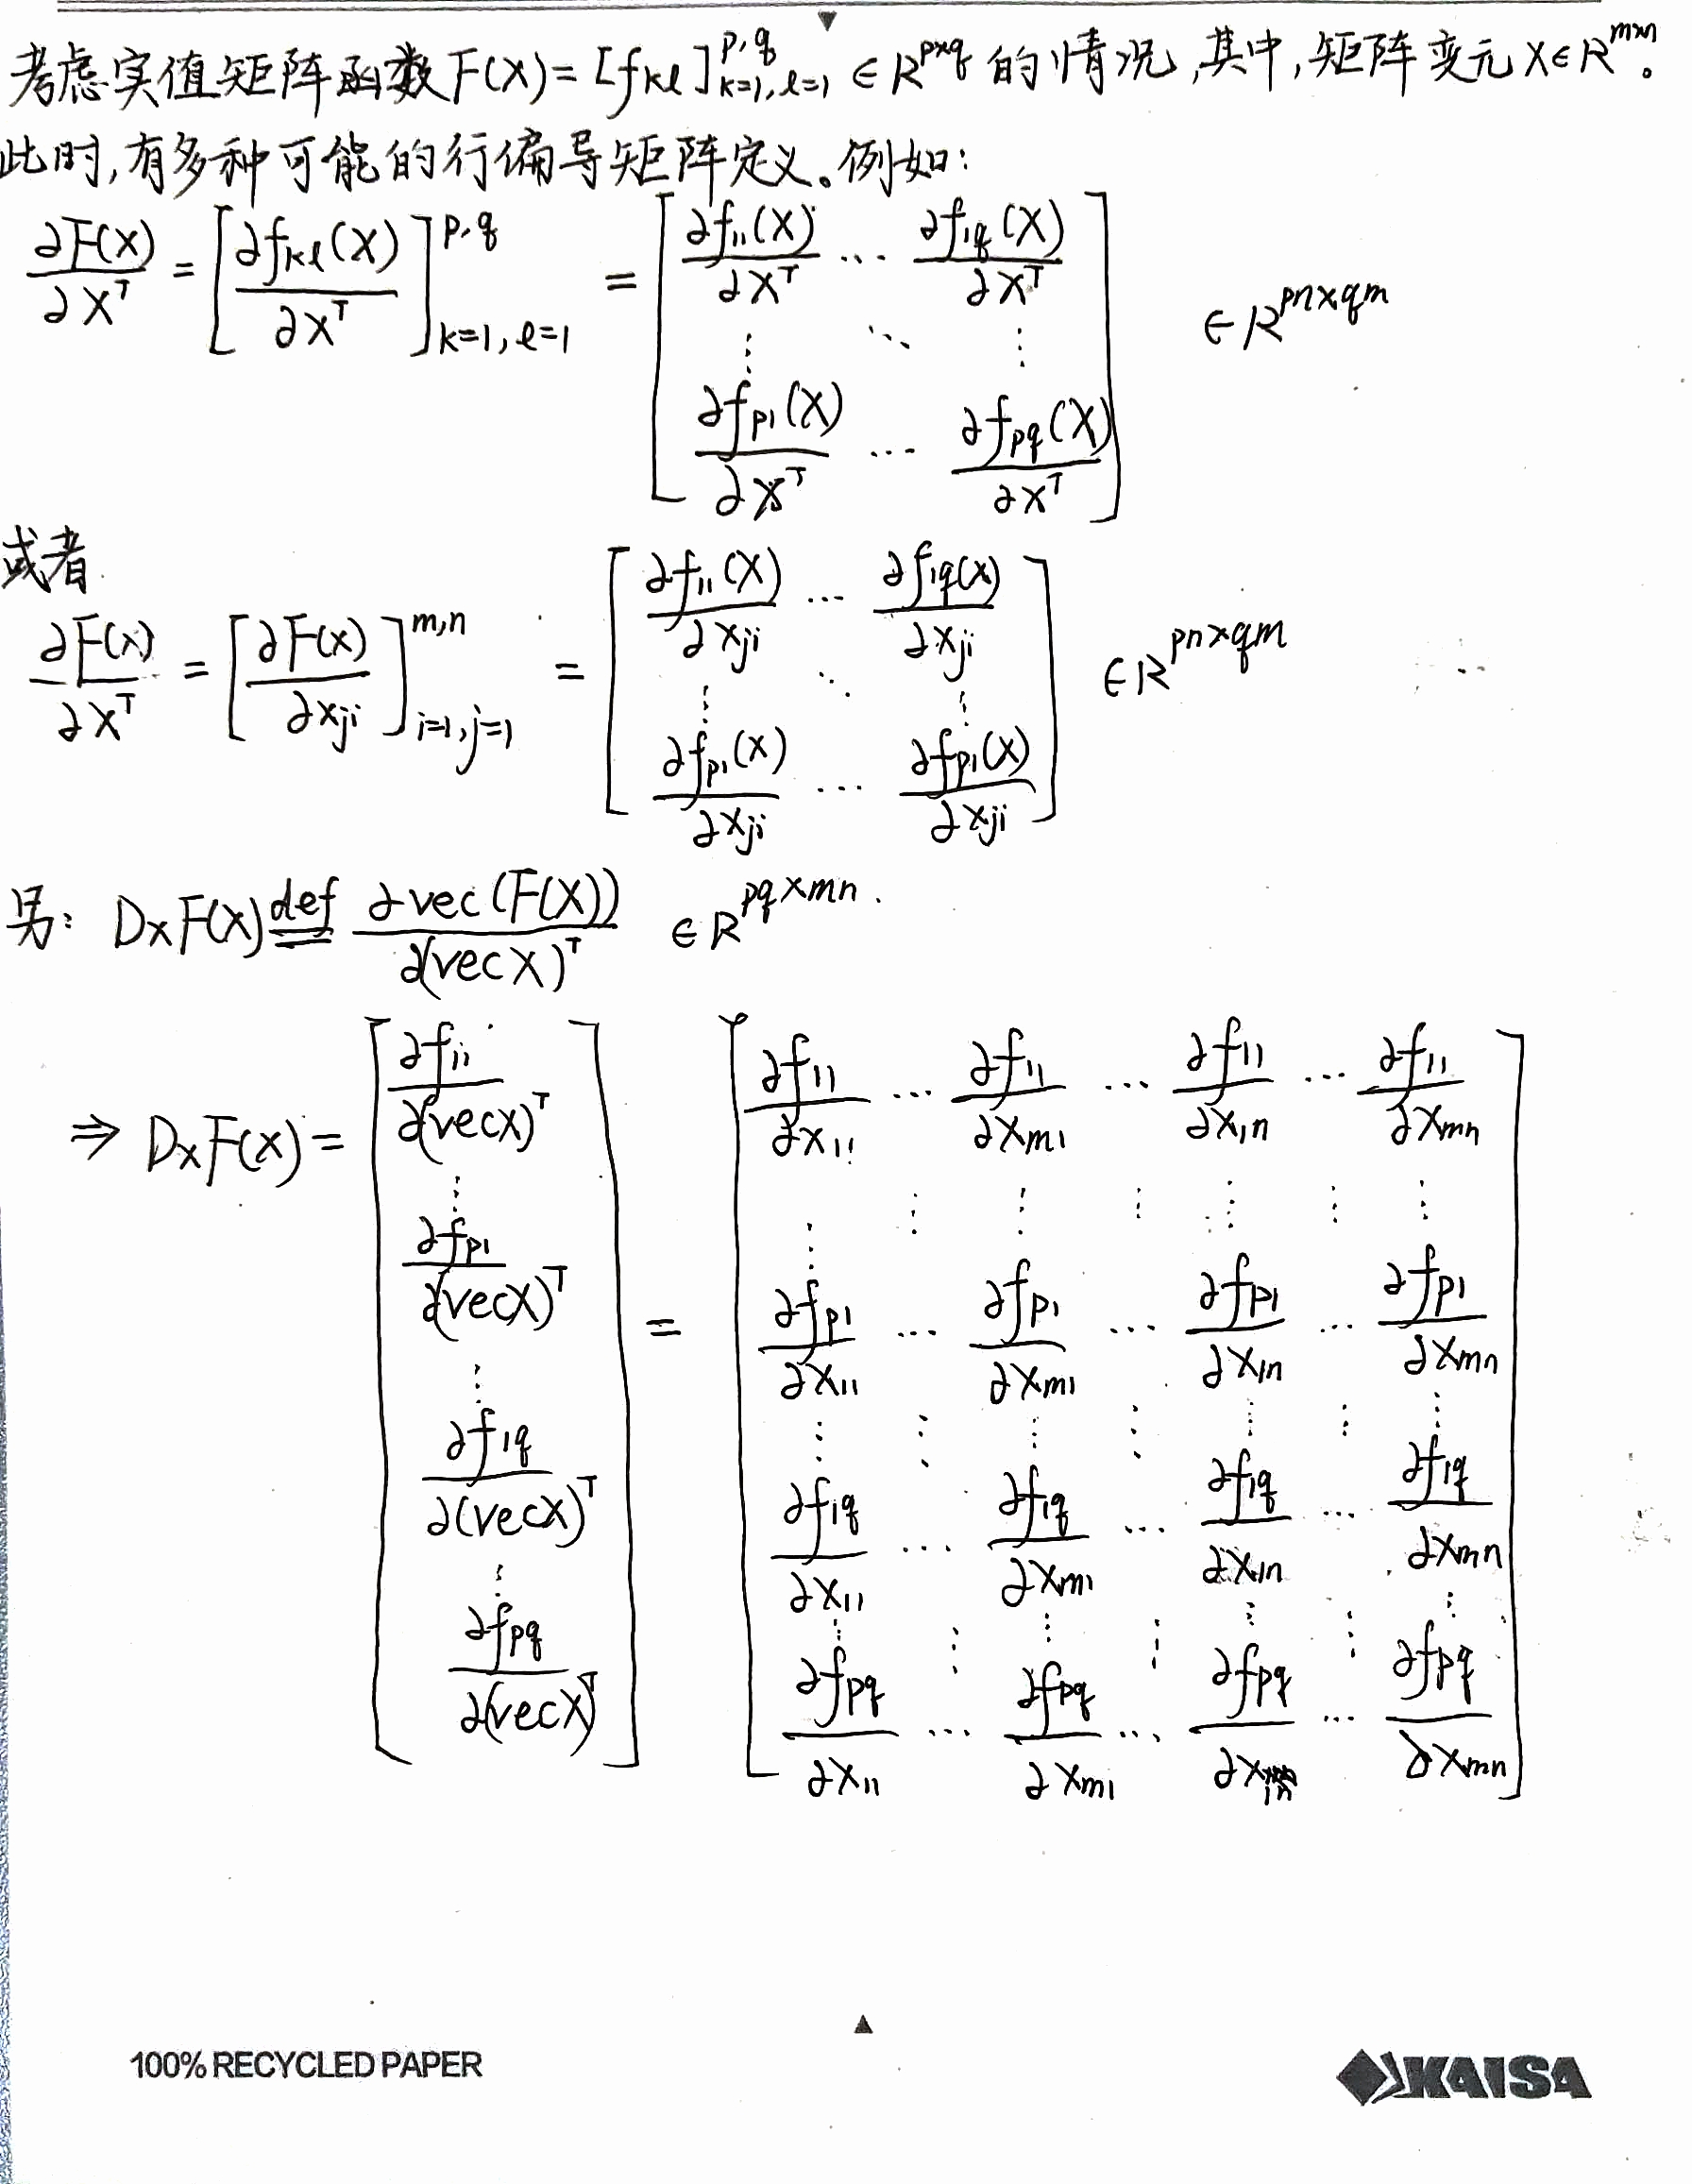 考虑实值矩阵函数 F(X) = [f_{kl}]_{k=1,l=1}^{p,q} ∈ R^{p×q} 的情况,其中,矩阵变元 X∈R^{m×n}。
此时,有多种可能的行偏导矩阵定义。例如:
∂F(X)/∂X^T = [∂f_{kl}(X)/∂X^T]_{k=1,l=1}^{p,q} = [∂f_{11}(X)/∂X^T ... ∂f_{1q}(X)/∂X^T
⋮ ⋱ ⋮
∂f_{p1}(X)/∂X^T ... ∂f_{pq}(X)/∂X^T] ∈ R^{pn×qm}
或者
∂F(X)/∂X^T = [∂F(X)/∂x_{ji}]_{i=1,j=1}^{m,n} = [∂f_{11}(X)/∂x_{ji} ... ∂f_{1q}(X)/∂x_{ji}
⋮ ⋱ ⋮
∂f_{p1}(X)/∂x_{ji} ... ∂f_{p1}(X)/∂x_{ji}] ∈ R^{pn×qm}
另: D_X F(X) def= ∂vec(F(X))/∂(vecX)^T ∈ R^{pq×mn}.
⇒ D_X F(X) = [∂f_{11}/∂(vecX)^T
⋮
∂f_{p1}/∂(vecX)^T
⋮
∂f_{1q}/∂(vecX)^T
⋮
∂f_{pq}/∂(vecX)^T]
= [∂f_{11}/∂x_{11} ... ∂f_{11}/∂x_{m1} ... ∂f_{11}/∂x_{1n} ... ∂f_{11}/∂x_{mn}
⋮ ⋮ ⋮ ⋮ ⋮ ⋮ ⋮
∂f_{p1}/∂x_{11} ... ∂f_{p1}/∂x_{m1} ... ∂f_{p1}/∂x_{1n} ... ∂f_{p1}/∂x_{mn}
⋮ ⋮ ⋮ ⋮ ⋮ ⋮ ⋮
∂f_{1q}/∂x_{11} ... ∂f_{1q}/∂x_{m1} ... ∂f_{1q}/∂x_{1n} ... ∂f_{1q}/∂x_{mn}
⋮ ⋮ ⋮ ⋮ ⋮ ⋮ ⋮
∂f_{pq}/∂x_{11} ... ∂f_{pq}/∂x_{m1} ... ∂f_{pq}/∂x_{1n} ... ∂f_{pq}/∂x_{mn}]
100% RECYCLED PAPER
KAISA